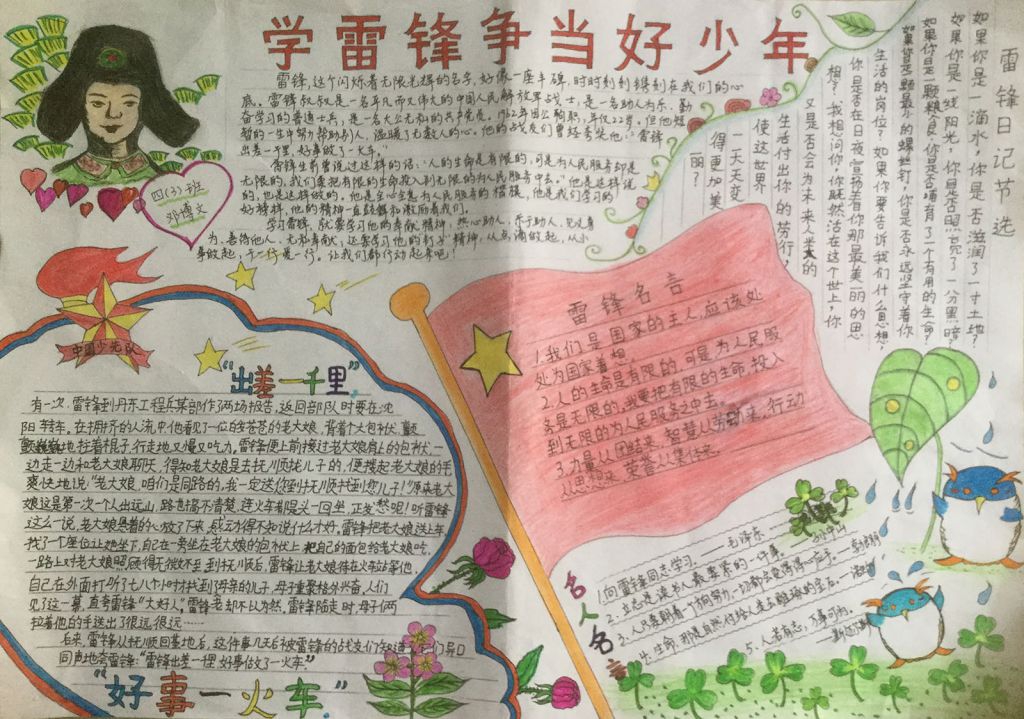 学雷锋争当好少年
雷锋,这个闪烁着无限光辉的名字,好像一座丰碑,时时刻刻镂刻在我们的心
底。雷锋叔叔是一名平凡而又伟大的中国人民解放军战士,是一名助人为乐、勤
奋学习的普通士兵,是一名大公无私的共产党员。1962年因公殉职,年仅22岁。但他短
暂的一生中努力帮助别人,温暖了无数人的心。他的战友们曾经夸奖他:“雷锋
出差一千里,好事做了一火车。”
雷锋生前曾说过这样的话:“人的生命是有限的,可是为人民服务却是
无限的,我们要把有限的生命投入到无限的为人民服务中去。”他是这样说
的,也是这样做的。他是全心全意为人民服务的楷模,他是我们学习的
好榜样,他的精神一直鼓舞和激励着我们。
学习雷锋,就要学习他的奉献精神,热心助人,乐于助人,见义勇
为、善待他人、无私奉献,还要学习他的钉子精神,从点滴做起,从小
事做起,干一行爱一行。让我们都行动起来吧!
四(3)班
邓博文
雷锋日记节选
如果你是一滴水,你是否滋润了一寸土地?
如果你是一线阳光,你是否照亮了一分黑暗?
如果你是一颗粮食,你是否哺育了一个有用的生命?
如果你是一颗最小的螺丝钉,你是否永远坚守着你
生活的岗位?如果你要告诉我们什么思想,
你是否在日夜宣扬着你那最美丽的思
想?我想问你,你既然活在这个世上,你
又是否会为未来人类的
生活付出你的劳行,
使这世界
一天天变
得更加美
丽?
中国少先队
“出差一千里”
有一次,雷锋到丹东工程兵某部作了两场报告,返回部队时要在沈
阳转车。在拥挤的人流中,他看见了一位白发苍苍的老大娘,背着个大包袱,颤
颤巍巍地,拄着棍子,行走地又慢又吃力,雷锋便上前接过老大娘肩上的包袱,一
边走一边和老大娘聊天,得知老大娘是去抚顺找儿子的,便搀起老大娘的手
爽快地说:“老大娘,咱们是同路的,我一定送您到抚顺,找到您儿子!”原来老大
娘这是第一次一个人出远山,路也搞不清楚,连火车都是头一回坐,正发愁呢!听雷锋
这么一说,老大娘悬着的心放了下来,感动得不知说什么才好,雷锋把老大娘送上车,
找了个座位让她坐下,自己在一旁坐在老大娘的包袱上,把自己的面包给老大娘吃,
一路上对老大娘照顾得无微不至,到抚顺后,雷锋让老大娘待在火车站等他,
自己在外面打听了七八个小时才找到母亲的儿子,母子重聚格外兴奋,人们
见了这一幕,直夸雷锋“大好人”,雷锋老却不以为然,雷锋临走时,母子俩
拉着他的手送出了很远很远……
后来,雷锋从抚顺回基地后,这件事几天后被雷锋的战友们知道了,他们异口
同声地夸雷锋:“雷锋出差一里,好事做了一火车。”
“好事一火车”
雷锋名言
1.我们是国家的主人,应该处
处为国家着想。
2.人的生命是有限的,可是,为人民服
务是无限的,我要把有限的生命,投入
到无限的为人民服务之中去。
3.力量从团结来,智慧从劳动来,行动
从思想来,荣誉从集体来。
名人名言
1.向雷锋同志学习。——毛泽东
2.立志是读书人最要紧的一件事。——孙中山
5.人若有志,万事可为。